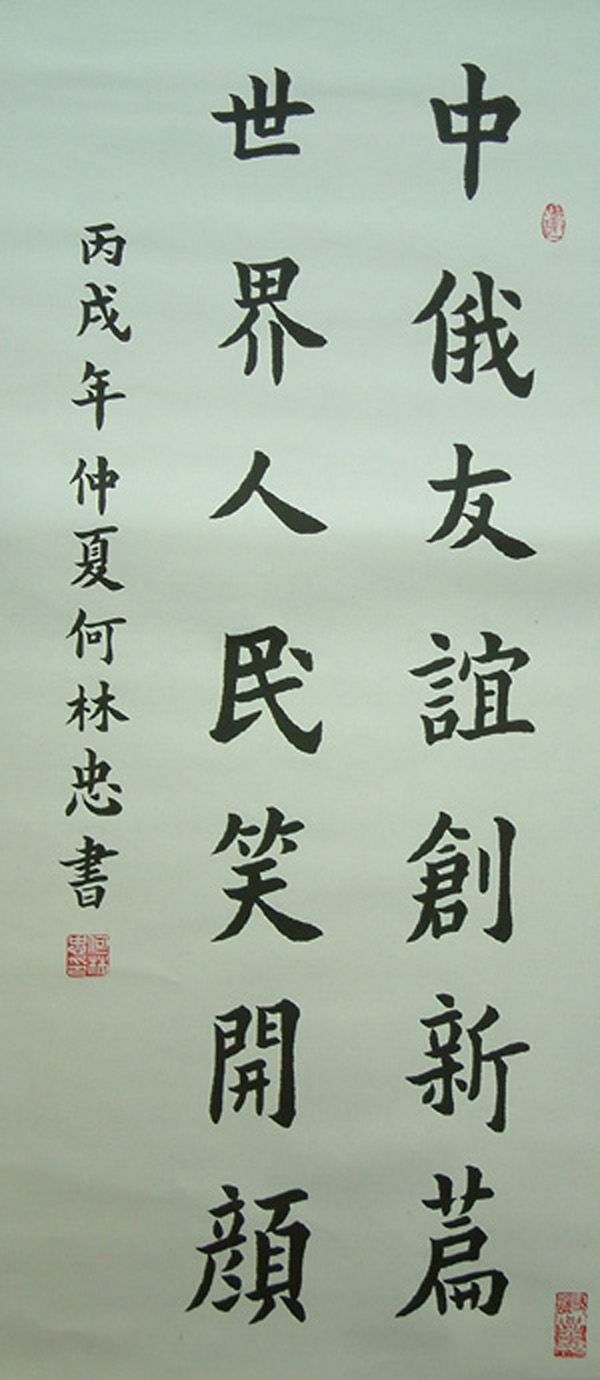 中俄友誼創新篇
世界人民笑開顔
丙戌年仲夏何林忠書